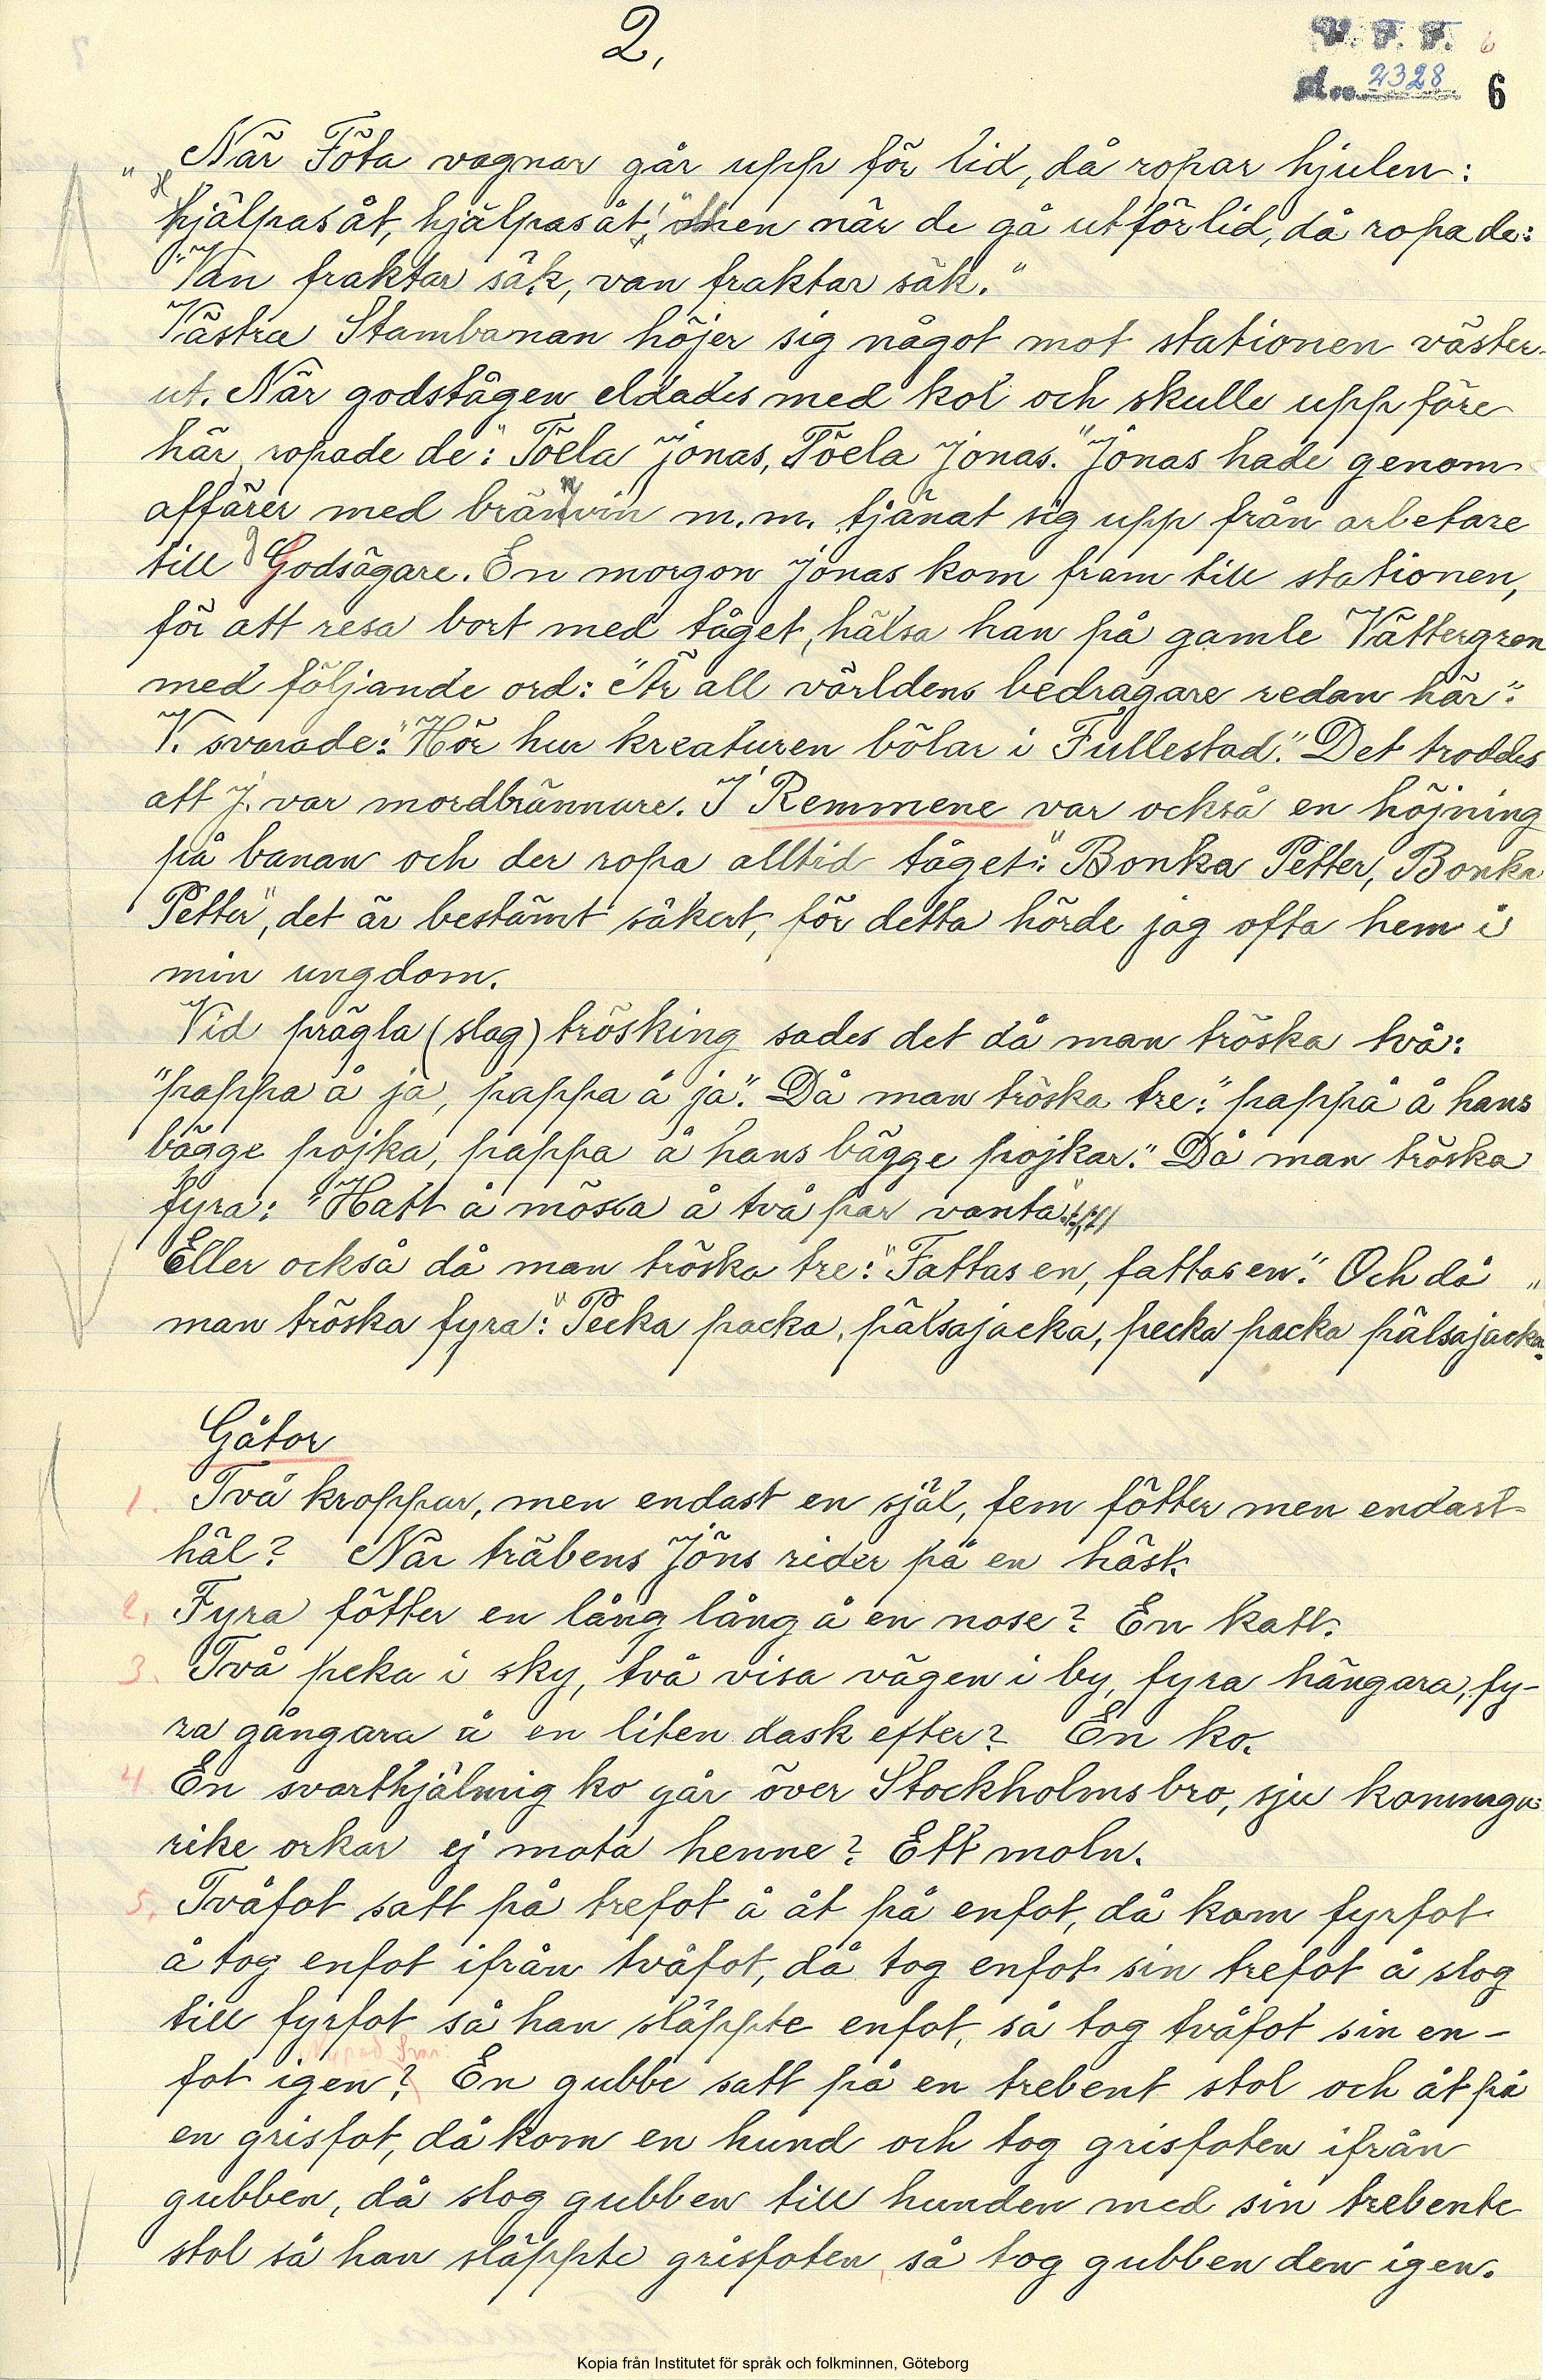 2.
V. F. F. 6
Acc. 2328 6
"När Töta vagnar går upp för lid, då ropar hjulen:
hjälpas åt, hjälpas åt," men när de gå utför lid, då ropa de:
"Van fraktar säk, van fraktar säk."
Västra Stambanan höjer sig något mot stationen väster-
ut. När godstågen eldades med kol och skulle upp före
här, ropade de: "Töela Jonas, Töela Jonas." Jonas hade genom
affärer med brännvin m.m. tjänat sig upp från arbetare
till Godsägare. En morgon Jonas kom fram till stationen,
för att resa bort med tåget, hälsa han på gamle Vättergren
med följande ord: "Är all världens bedragare redan här".
V. svarade: "Hör hur kreaturen bölar i Fullestad." Det troddes
att J. var mordbrännare. I Remmene var också en höjning
på banan och der ropa alltid tåget: "Bonka Petter, Bonka
Petter", det är bestämt säkert, för detta hörde jag ofta hem i
min ungdom.
Vid prägla (slag) trösking sades det då man tröska två:
"pappa å ja, pappa å ja". Då man tröska tre: "pappa å hans
bägge pojka, pappa å hans bägge pojkar." Då man tröska
fyra: "Hatt å mössa å två par vanta"
Eller också då man tröska tre: "Fattas en, fattas en". Och då
man tröska fyra: "Pecka packa, pälsajacka, pecka packa pälsajacka"
Gåtor
1. Två kroppar, men endast en själ, fem fötter men endast
häl? När träbens Jöns rider på en häst.
2. Fyra fötter en lång lång å en nose? En katt.
3. Två peka i sky, två visa vägen i by, fyra hängara, fy-
ra gångara å en liten dask efter? En ko.
4. En svarthjälmig ko går över Stockholms bro, sju konunga-
rike orkar ej mota henne? Ett moln.
5. Tvåfot satt på trefot å åt på enfot, då kom fyrfot
å tog enfot ifrån tvåfot, då tog enfot sin trefot å slog
till fyrfot så han släppte enfot, så tog tvåfot sin en-
Svar:
fot igen? En gubbe satt på en trebent stol och åt på
en grisfot, då kom en hund och tog grisfoten ifrån
gubben, då slog gubben till hunden med sin trebente
stol så han släppte grisfoten, så tog gubben den igen.
Kopia från Institutet för språk och folkminnen, Göteborg